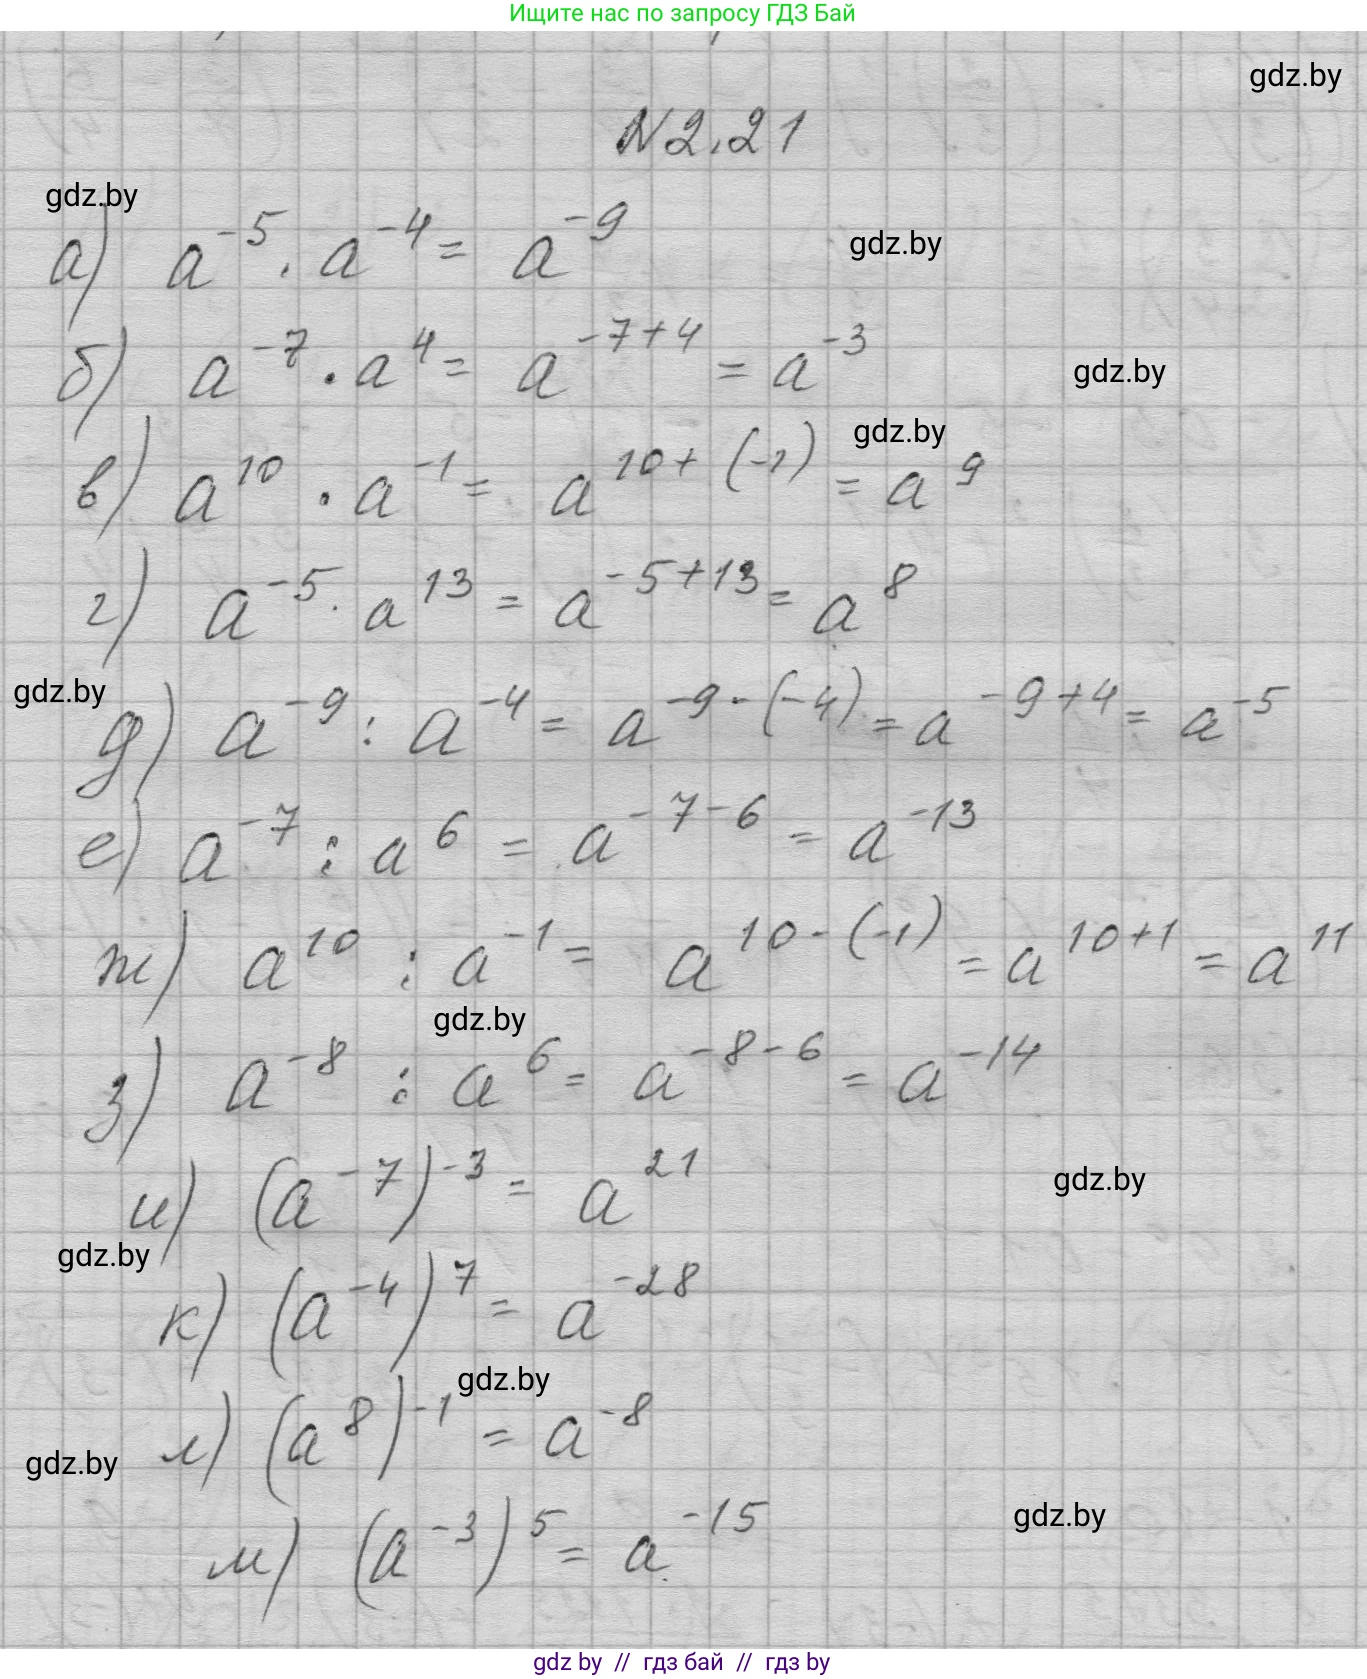 Ищите нас по запросу ГДЗ Бай
gdz.by
N2.21
gdz.by
а) a^{-5} · a^{-4} = a^{-9}
gdz.by
б) a^{-7} · a^{4} = a^{-7+4} = a^{-3}
gdz.by
gdz.by
в) a^{10} · a^{-1} = a^{10+(-1)} = a^{9}
г) a^{-5} · a^{13} = a^{-5+13} = a^{8}
gdz.by
д) a^{-9} : a^{-4} = a^{-9-(-4)} = a^{-9+4} = a^{-5}
е) a^{-7} : a^{6} = a^{-7-6} = a^{-13}
ж) a^{10} : a^{-1} = a^{10-(-1)} = a^{10+1} = a^{11}
gdz.by
з) a^{-8} : a^{6} = a^{-8-6} = a^{-14}
и) (a^{-7})^{-3} = a^{21}
gdz.by
gdz.by
к) (a^{-4})^{7} = a^{-28}
gdz.by
л) (a^{8})^{-1} = a^{-8}
gdz.by
gdz.by
м) (a^{-3})^{5} = a^{-15}
gdz by // гдз бай // гдз by